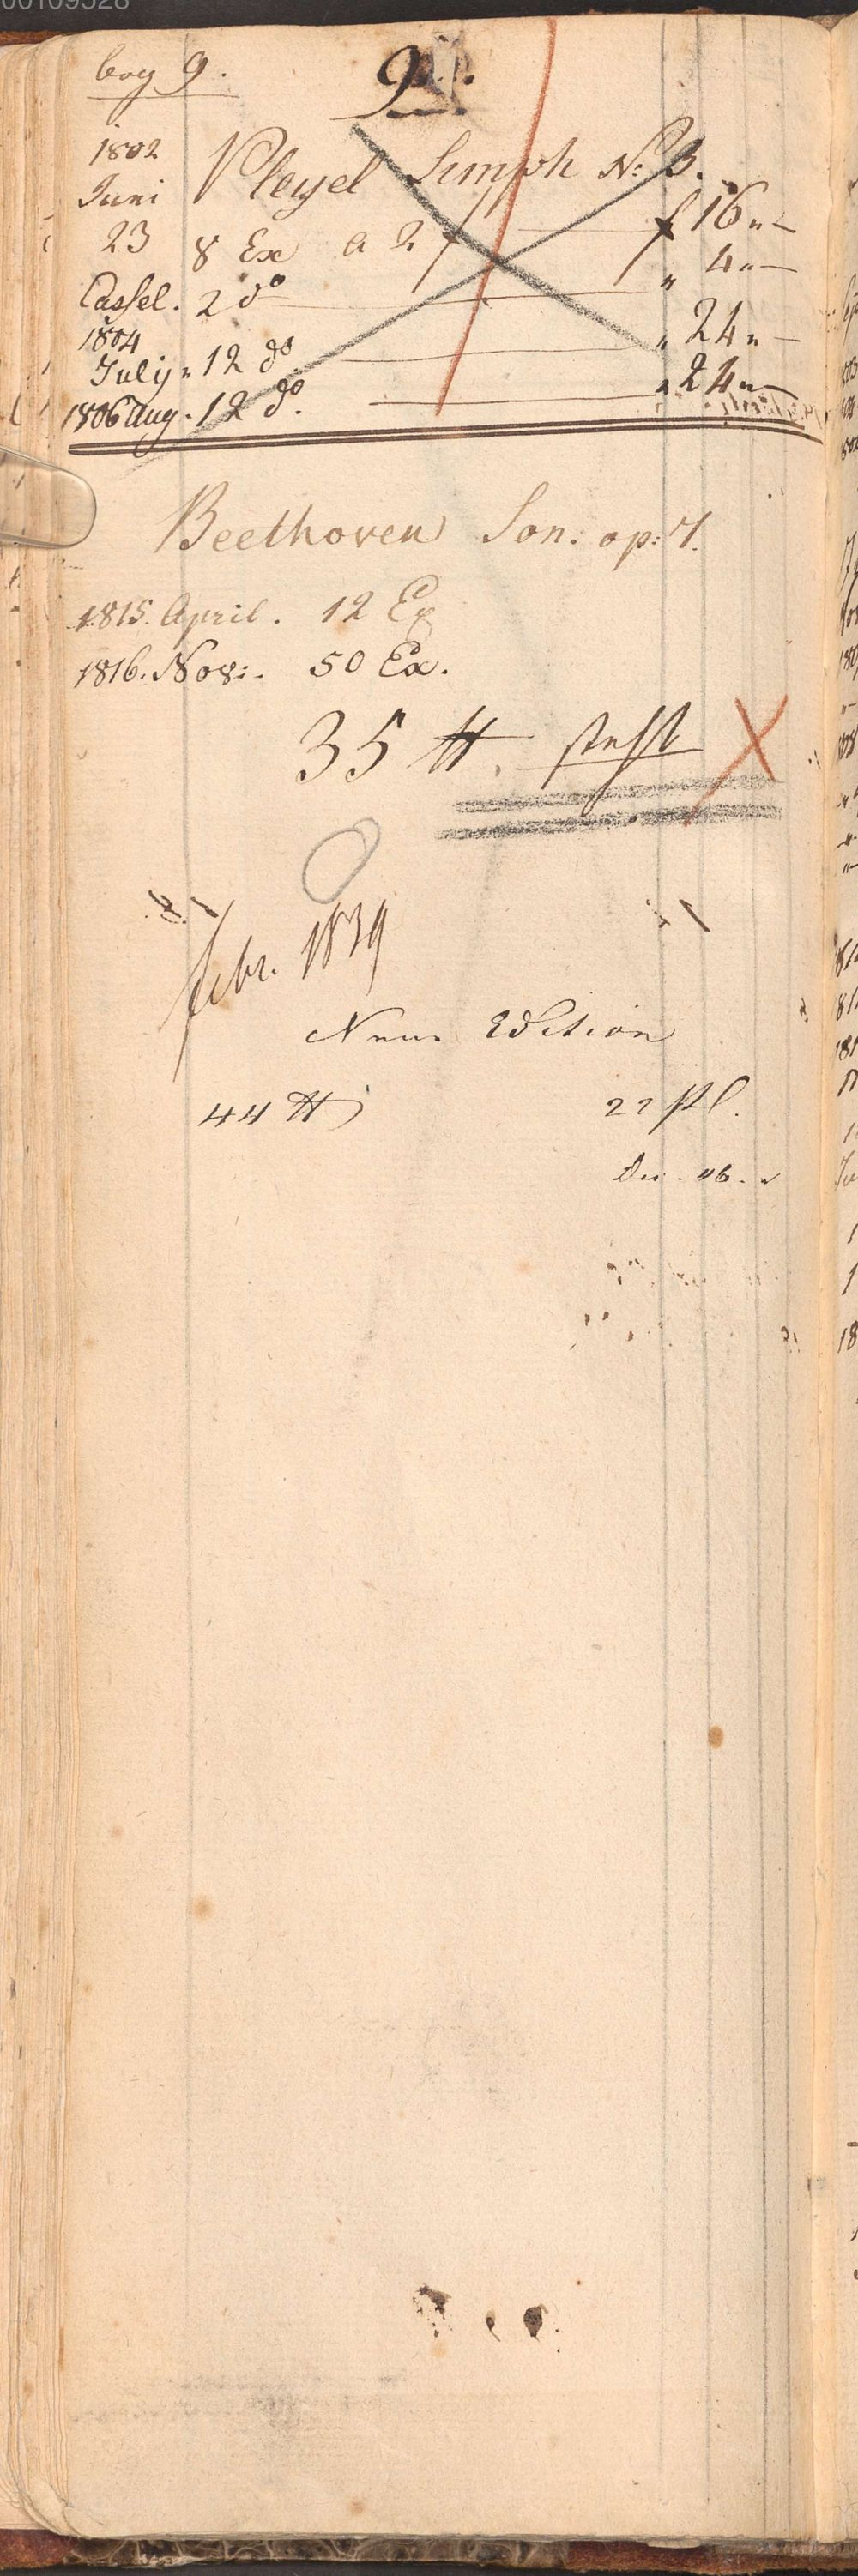 00109528
bog 9.
9.
1802
Juni
23
Pleyel Simph No: 3.
8 Ex a 2 f f 16 "—
Cassel. 2 do " 4 "—
1804
July " 12 do " 24 "—
1806 Aug. 12 do. " 24 "—
Beethoven Son: op: 7.
1815. April. 12 Ex
1816. Nov:. 50 Ex.
35 steht
febr. 1839
Neue Edition
44 22 Pl.
46.